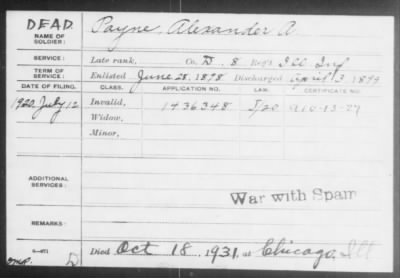 DEAD.
NAME OF SOLDIER:
Payne, Alexander A.
SERVICE:
Late rank, Co. D. 8 Reg't Ill Inf
TERM OF SERVICE:
Enlisted June 28, 1898 Discharged April 3 1899
DATE OF FILING. CLASS. APPLICATION NO. LAW. CERTIFICATE NO.
1920, July 12 Invalid, 1436348 910-13-27
Widow,
Minor,
ADDITIONAL SERVICES:
War with Spain
REMARKS:
Died Oct 18, 1931, at Chicago, Ill